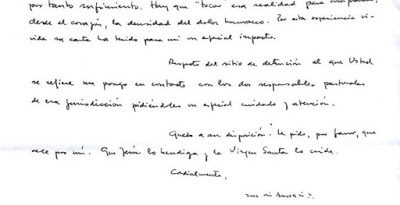 por tanto sufrimiento. Hay que "tocar esa realidad para comprender,
desde el corazón, la densidad del dolor humano. Por esta experiencia vi-
vida su carta ha tenido para mí un especial impacto.
Respecto del sitio de detención al que Usted
se refiere me pongo en contacto con los dos responsables pastorales
de esa jurisdicción pidiéndoles un especial cuidado y atención.
Quedo a su disposición. Le pido, por favor, que
rece por mí. Que Jesús lo bendiga y la Virgen Santa lo cuide.
Cordialmente,